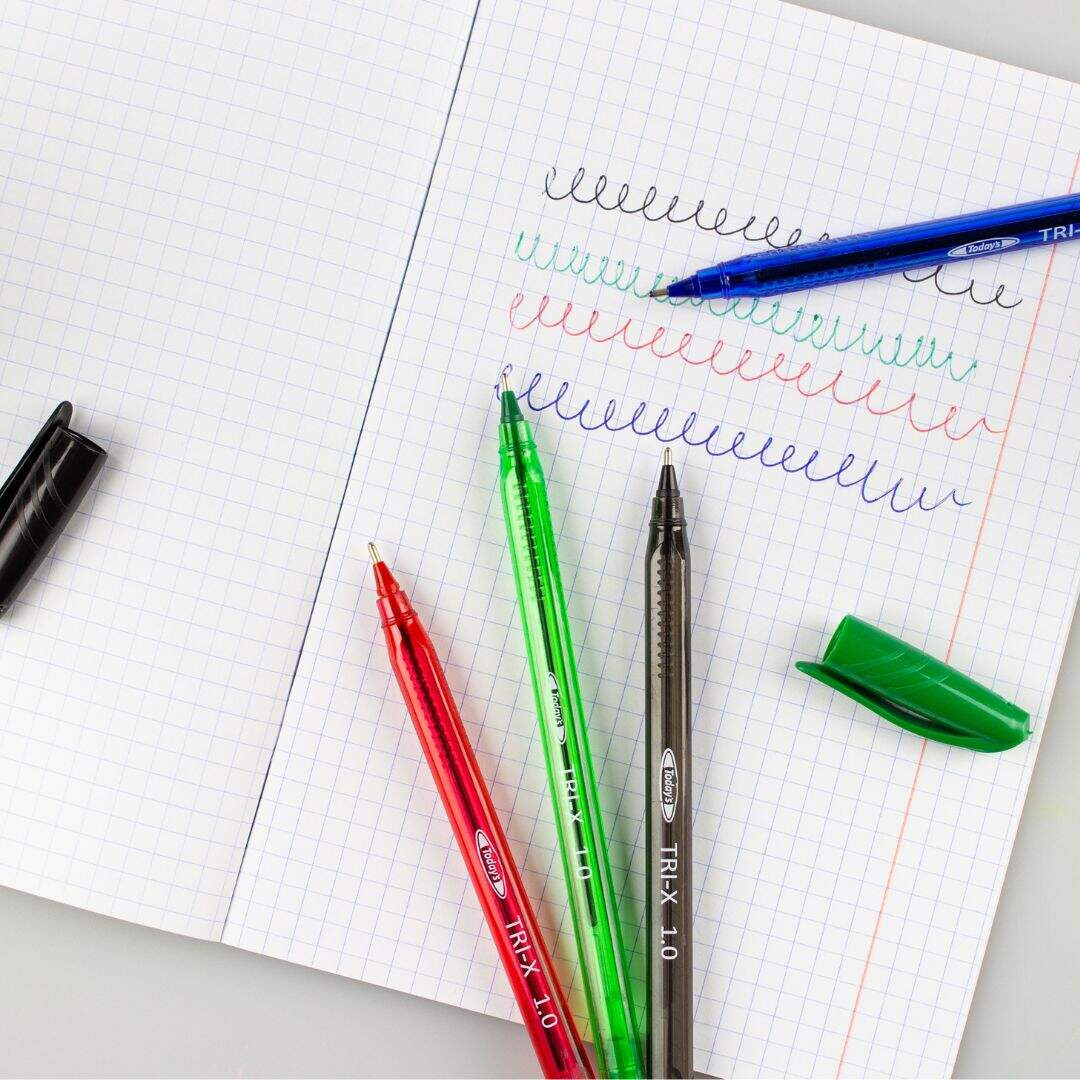 Today's TRI-
Today's TRI-X 1.0
Today's TRI-X 1.0
Today's TRI-X 1.0